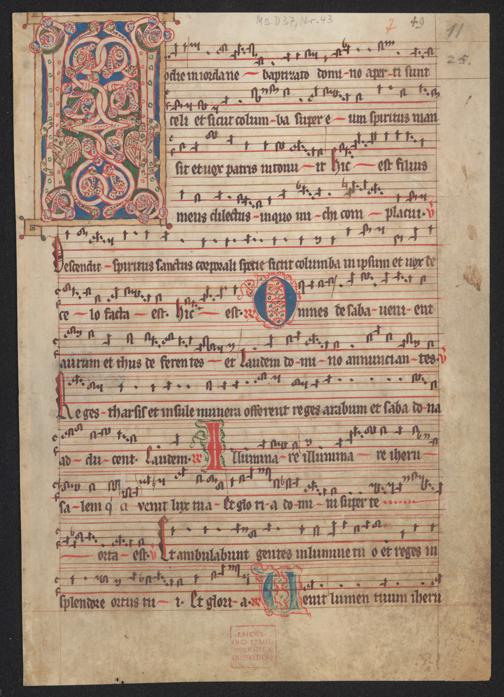 Ms D37, Nr. 43
7
49
11
25.
odie in iordane baptizato domi no aper ti sunt
celi et sicut colum ba super e um spiritus man
sit et uox patris intonu it hic est filius
meus dilectus in quo mi chi com placui. V
Descendit spiritus sanctus corporali specie sicut columba in ipsum et uox de
ce lo facta est. hic est. Omnes de saba ueni ent
aurum et thus de feren tes et laudem do mi no annuncian tes. V
Reges tharsis et insule munera offerent reges arabum et saba do na
ad du cent. Laudem. Illumina re illumina re iheru
sa lem q a venit lux tua Et glo ri a do mi ni super te
orta est. V Et ambulabunt gentes in lumine tu o et reges in
splendore ortus tu i. Et glori a. uenit lumen tuum iheru